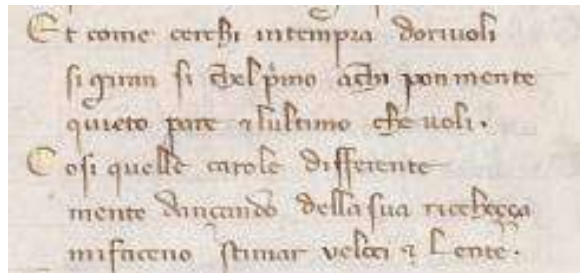 Et come cerchi intempra doriuoli
si giran si chel pimo achi ponmente
quieto pare ⁊ lultimo che uoli.
Cosi quelle carole differente
mente dançando della sua richeçça
mifaceno stimar veloci ⁊ Lente.